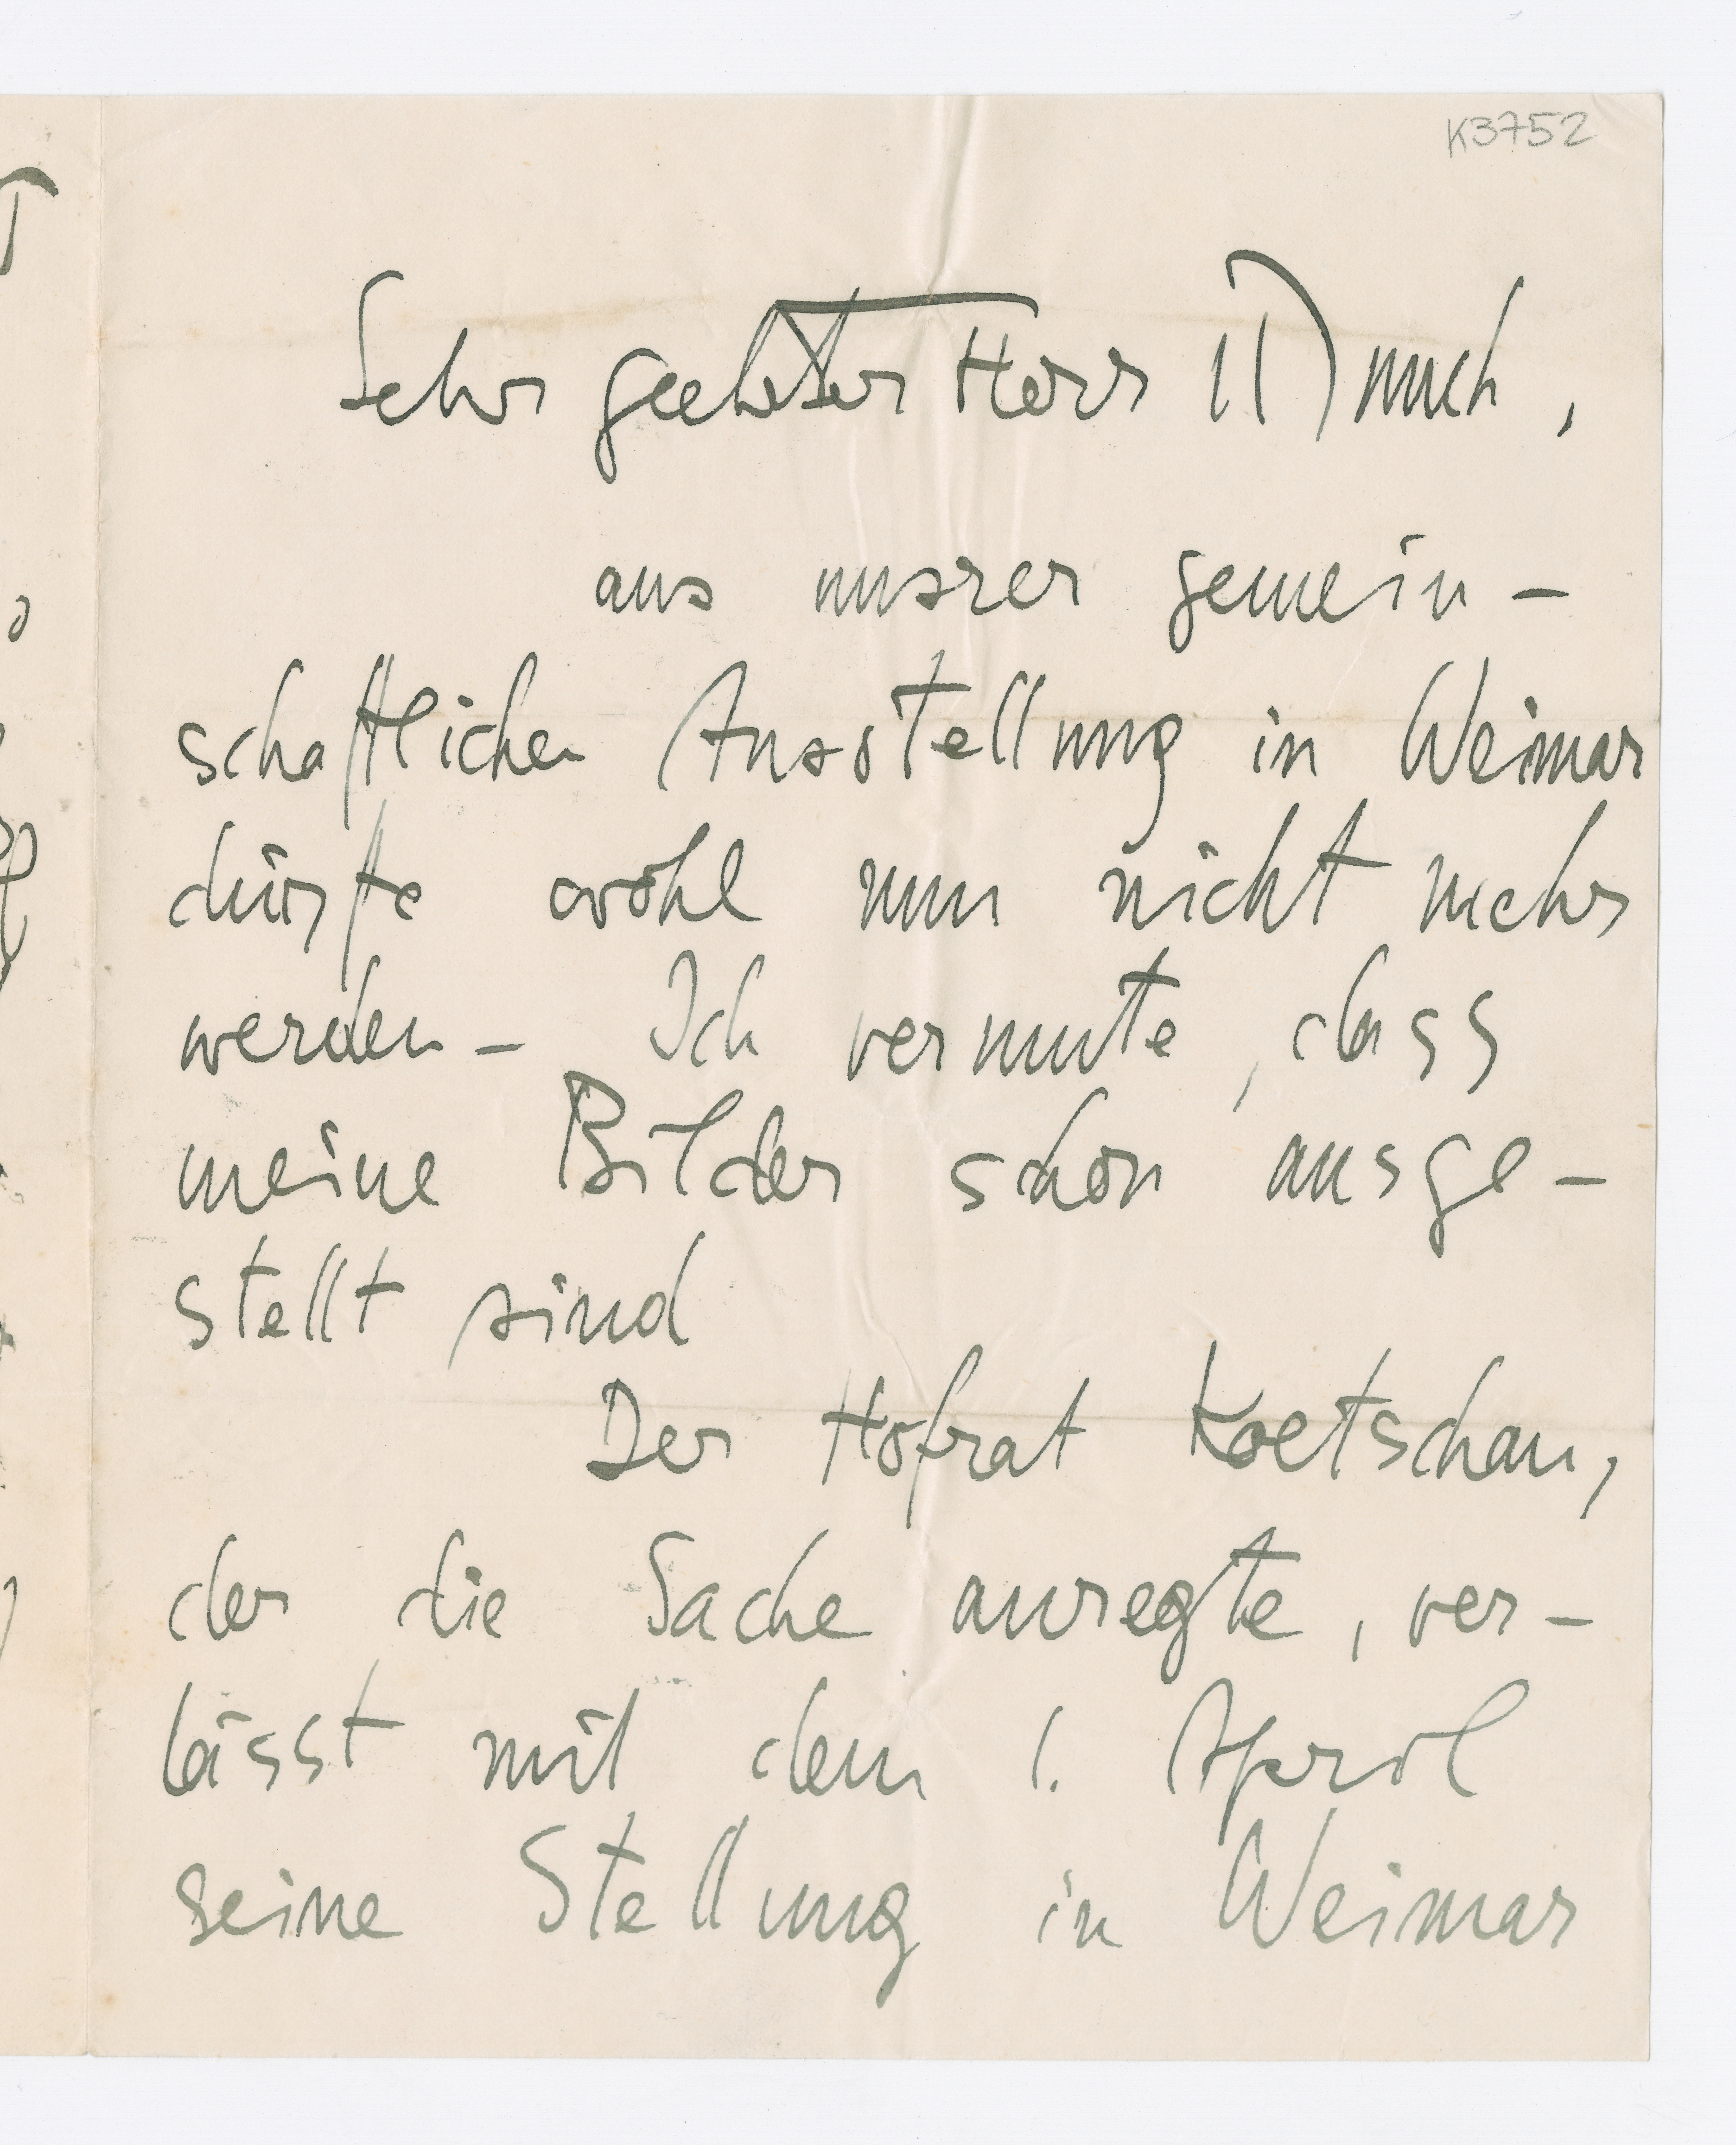 K3752
Sehr geehrter Herr Munch,
aus unsrer gemein –
schaftlichen Ausstellung in Weimar
dürfte wohl nun nicht mehr
werden – Ich vermute, dass
meine Bilder schon ausge –
stellt sind
Der Hofrat Koetschau,
der die Sache anregte, ver –
lässt mit dem 1. April
seine Stellung in Weimar